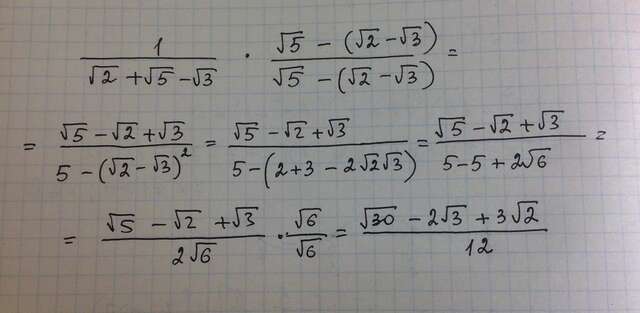 1/(√2 + √5 - √3) · (√5 - (√2 - √3))/(√5 - (√2 - √3)) =
= (√5 - √2 + √3)/(5 - (√2 - √3)²) = (√5 - √2 + √3)/(5 - (2 + 3 - 2√2√3)) = (√5 - √2 + √3)/(5 - 5 + 2√6) =
= (√5 - √2 + √3)/(2√6) · √6/√6 = (√30 - 2√3 + 3√2)/12